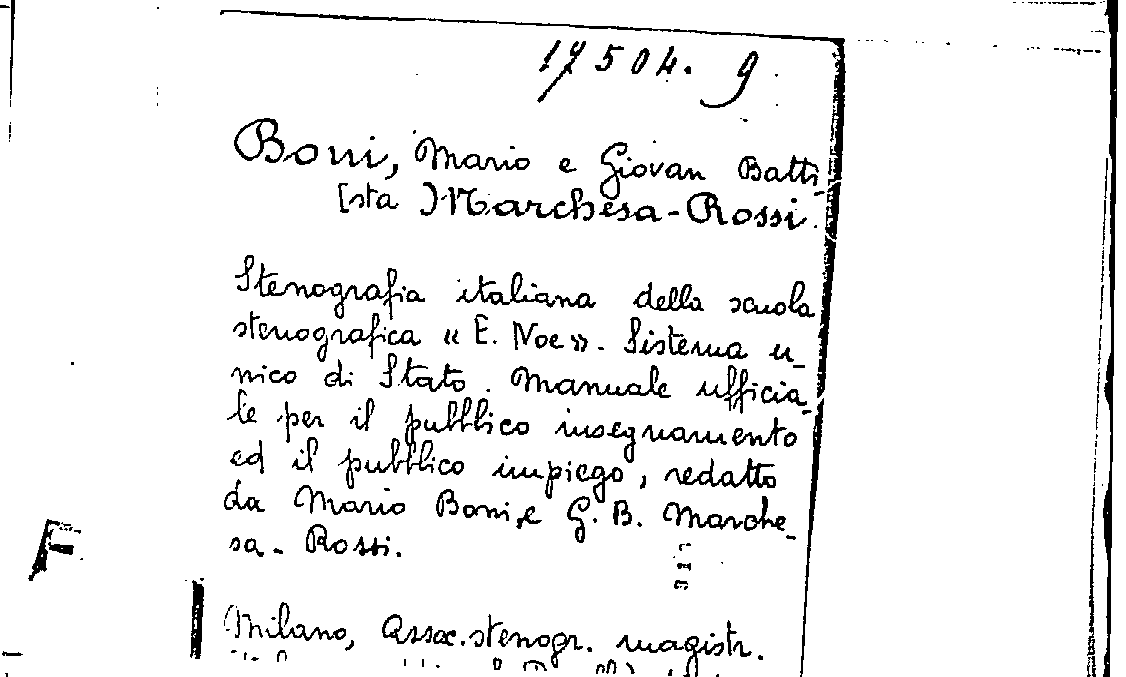 17504. 9
Boni, Mario e Giovan Batti-
[sta] Marchesa-Rossi.
Stenografia italiana della scuola
stenografica « E. Noe ». Sistema u-
nico di Stato. Manuale ufficia-
le per il pubblico insegnamento
ed il pubblico impiego, redatto
da Mario Boni, e G. B. Marche-
sa-Rossi.
F
Milano, Assoc. stenogr. magistr.